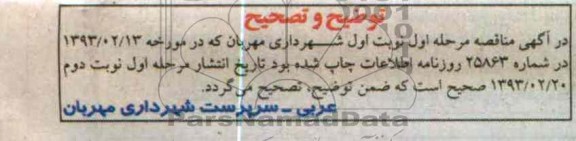 توضیح و تصحیح
در آگهی مناقصه مرحله اول نوبت اول شــهرداری مهربان که در مورخه ۱۳۹۳/۰۲/۱۳
در شماره ۲۵۸۶۳ روزنامه اطلاعات چاپ شده بود تاریخ انتشار مرحله اول نوبت دوم
۱۳۹۳/۰۲/۲۰ صحیح است که ضمن توضیح، تصحیح می‌گردد.
عربی ـ سرپرست شهرداری مهربان
ParsNamadData